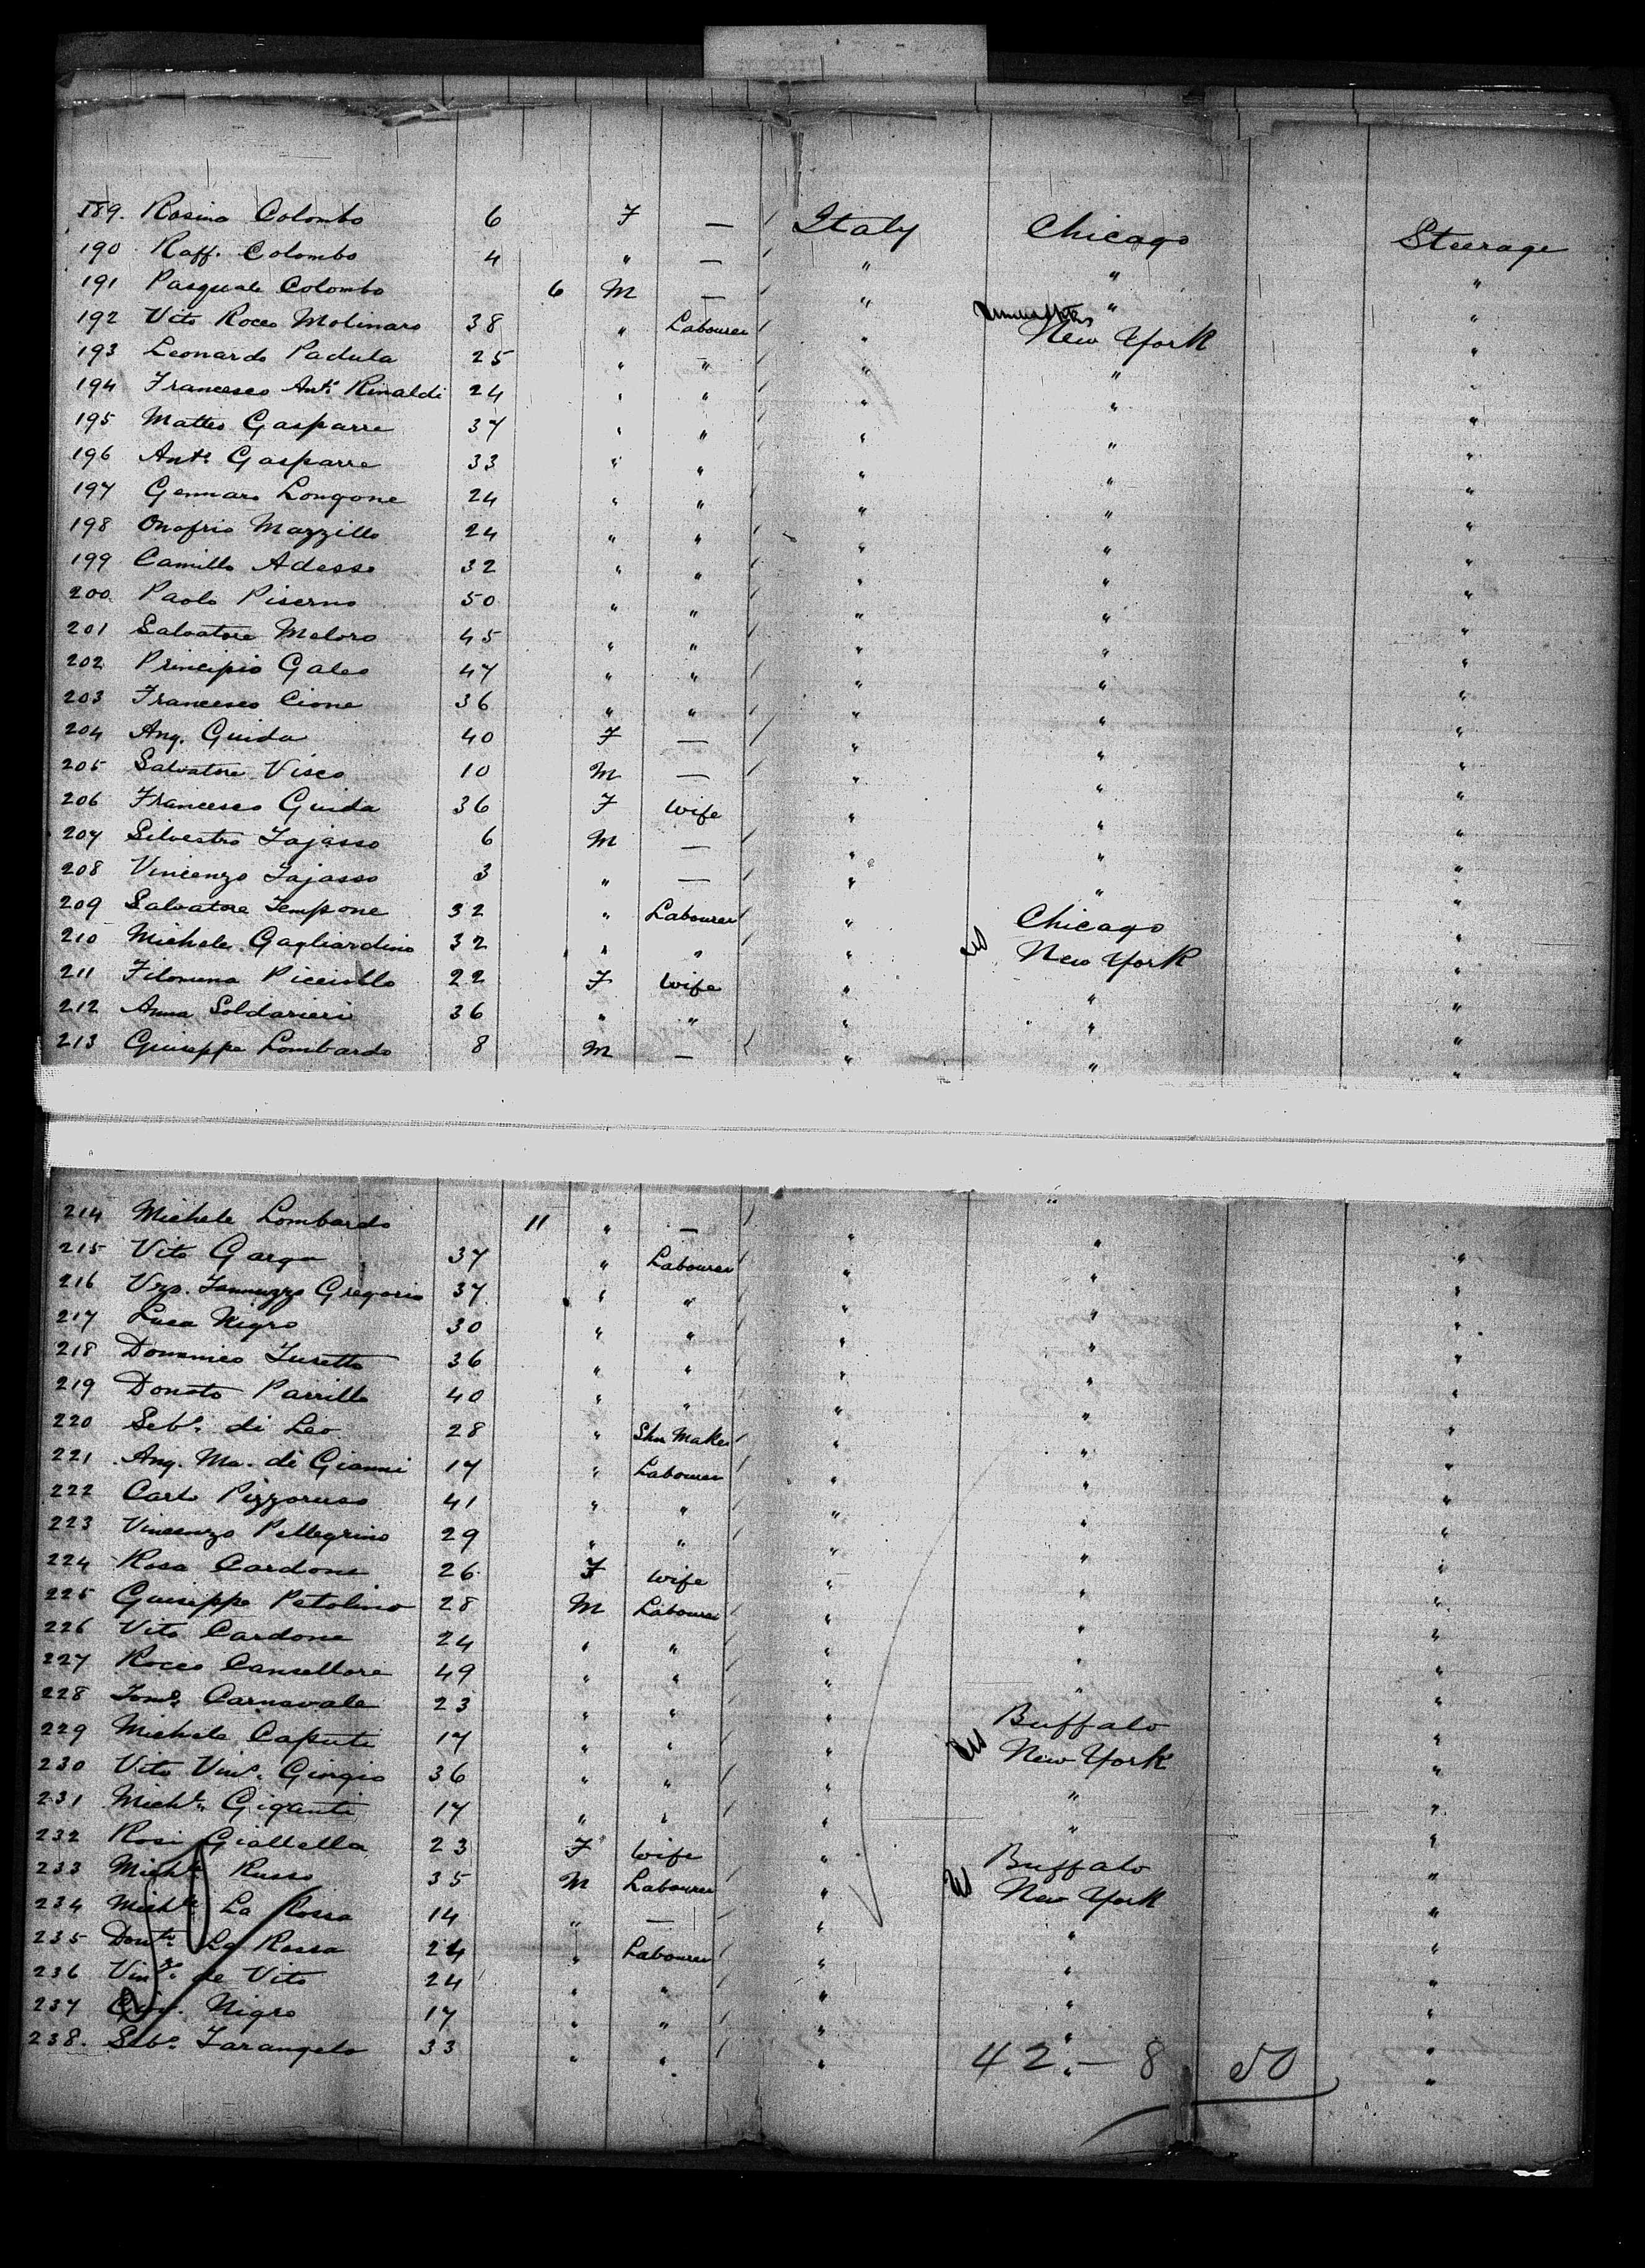 189. Rosina Colombo 6 F — / Italy Chicago Steerage
190 Raff. Colombo 4 " — / " " "
191 Pasquale Colombo 6 M — / " " "
192 Vito Rocco Molinaro 38 " Labourer / " New York "
193 Leonardo Padula 25 " " / " " "
194 Francesco Anto. Rinaldi 24 " " / " " "
195 Matteo Gasparre 37 " " / " " "
196 Anto. Gasparre 33 " " / " " "
197 Gennaro Longone 24 " " / " " "
198 Onofrio Mazzillo 24 " " / " " "
199 Camillo Adesso 32 " " / " " "
200. Paolo Piserno 50 " " / " " "
201 Salvatore Meloro 45 " " / " " "
202 Principio Galeo 47 " " / " " "
203 Francesco Cione 36 " " / " " "
204 Ang. Guida 40 F — / " " "
205 Salvatore Visco 10 M — / " " "
206 Francesco Guida 36 F Wife " " "
207 Silvestro Tajasso 6 M — / " " "
208 Vincenzo Tajasso 3 " — / " " "
209 Salvatore Tempone 32 " Labourer / " Chicago "
210 Michele Gagliardino 32 " " / " New York "
211 Filomena Picciollo 22 F Wife " " "
212 Anna Soldarieri 36 " " " " "
213 Guiseppe Lombardo 8 M — / " " "
214 Michele Lombardo 11 " — / " " "
215 Vito Garga 37 " Labourer / " " "
216 Vzo. Iannuzzo Gregorio 37 " " / " " "
217 Luca Nigro 30 " " / " " "
218 Domenico Turetto 36 " " / " " "
219 Donato Parrillo 40 " " / " " "
220 Sebo. di Leo 28 " Shoe Maker / " " "
221 Ang. Ma. di Gianni 17 " Labourer / " " "
222 Carlo Pizzoruso 41 " " / " " "
223 Vincenzo Pellegrino 29 " " / " " "
224 Rosa Cardone 26 F Wife " " "
225 Guiseppe Petolino 28 M Labourer / " " "
226 Vito Cardone 24 " " / " " "
227 Rocco Cansellore 49 " " / " " "
228 Tomo. Carnavale 23 " " / " Buffalo "
229 Michele Caputi 17 " " / " New York "
230 Vito Vino. Giorgio 36 " " / " " "
231 Miche. Giganti 17 " " / " " "
232 Rosi Giallella 23 F Wife " Buffalo "
233 Miche. Russo 35 M Labourer / " New York "
234 Miche. La Rossa 14 " — / " " "
235 Donto. La Rossa 24 " Labourer / " " "
236 Vinzo. de Vito 24 " " / " " "
237 Nigro 17 " " / " " "
238. Sebo. Tarangelo 33 " " / " " "
42 - 8 50